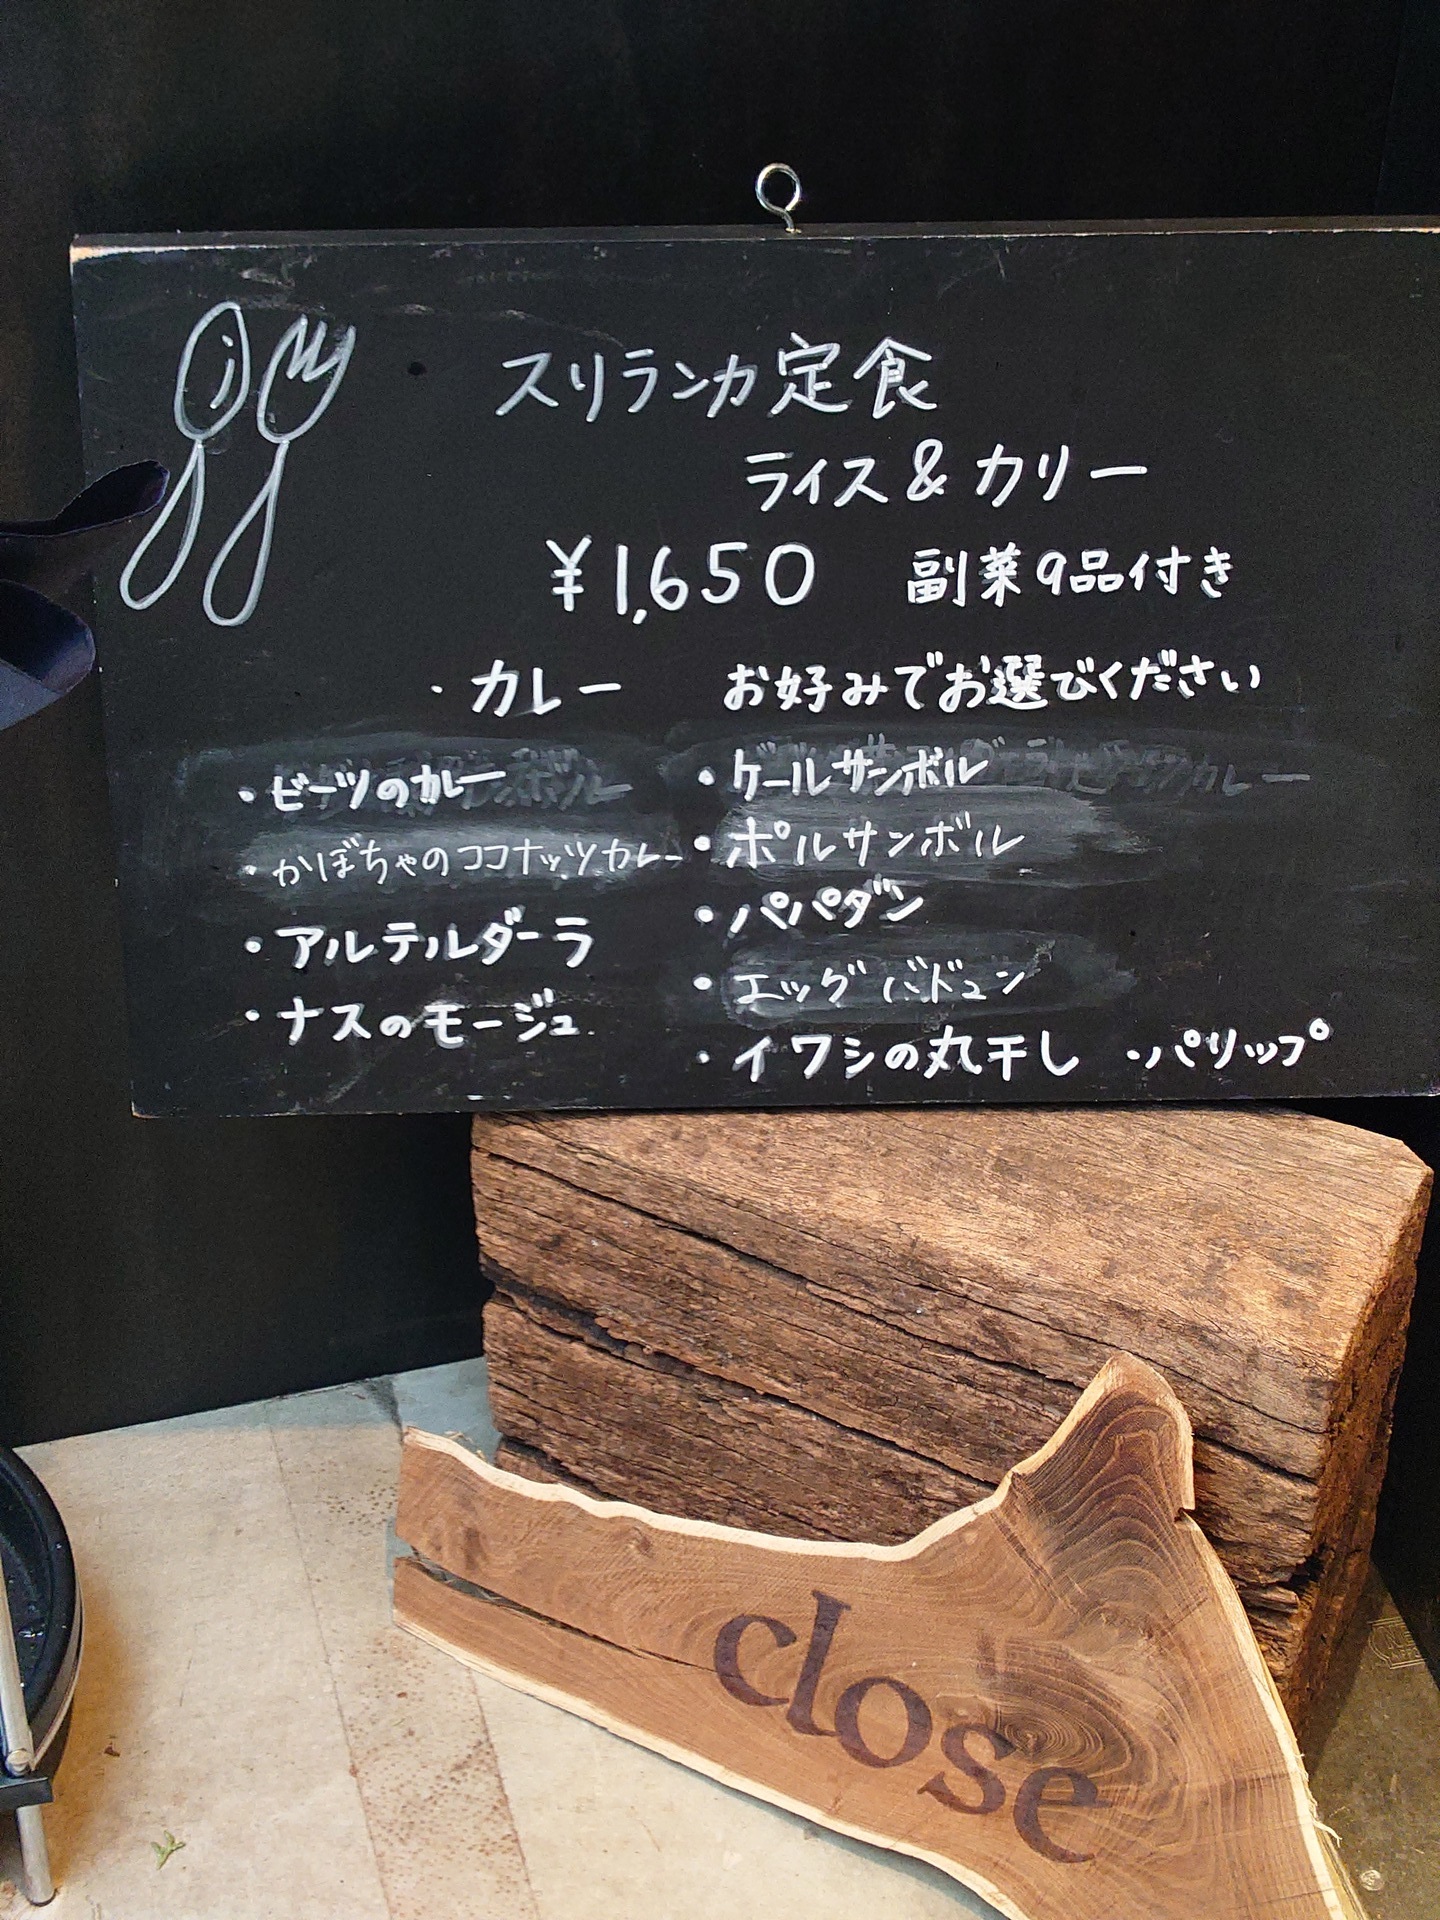 スリランカ定食
ライス&カリー
¥1,650 副菜9品付き
・カレー お好みでお選びください
・ビーツのカレー
・かぼちゃのココナッツカレー
・アルテルダーラ
・ナスのモージュ
・ケールサンボル
・ポルサンボル
・パパダン
・エッグバドュン
・イワシの丸干し ・パリップ
close